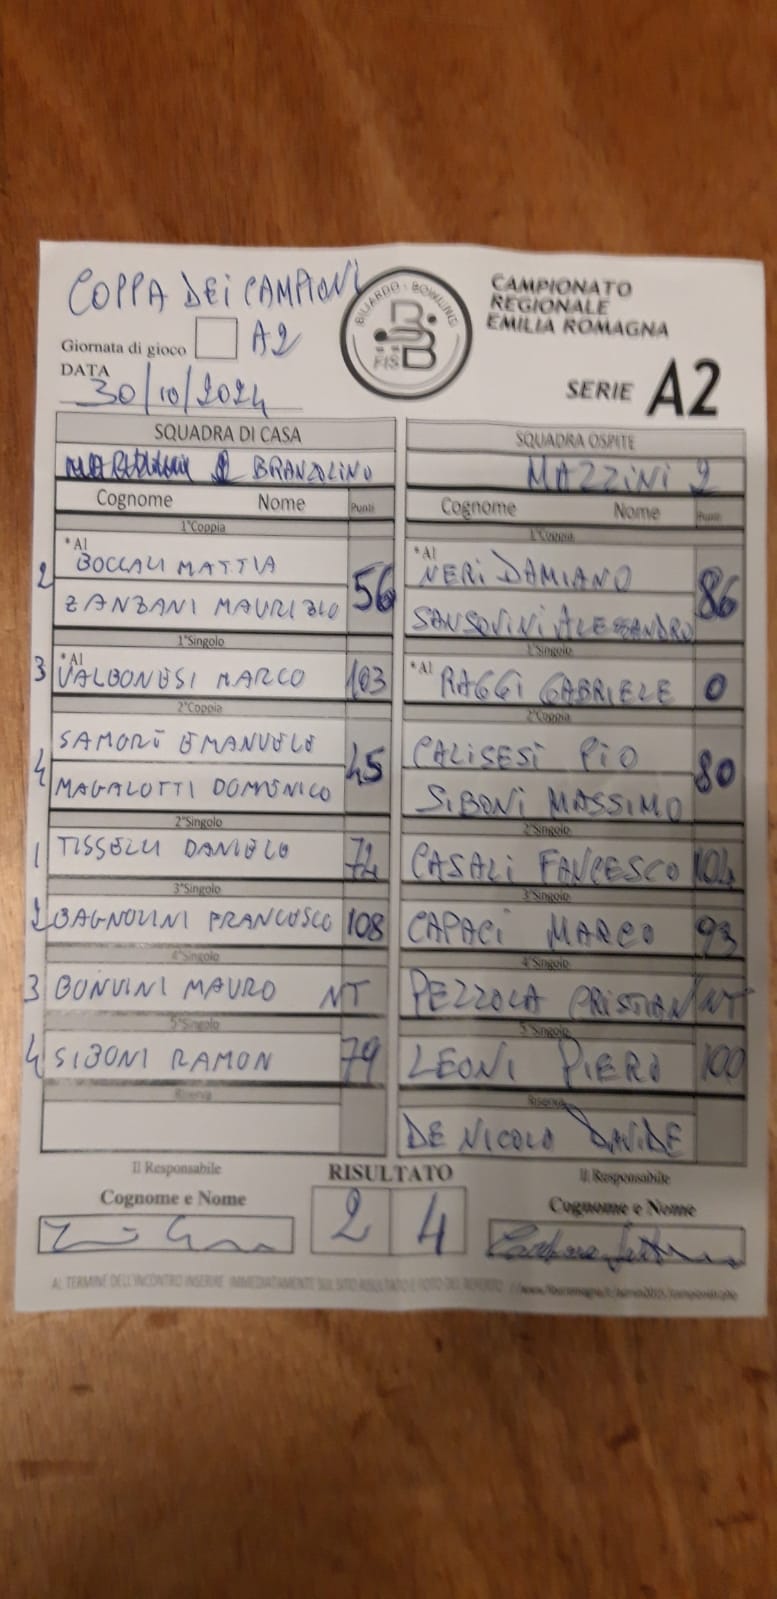 COPPA DEI CAMPIONI
BILIARDO - BOWLING
FISBB
CAMPIONATO
REGIONALE
EMILIA ROMAGNA
Giornata di gioco A2
DATA
30/10/2024
SERIE A2
SQUADRA DI CASA SQUADRA OSPITE
BRANZOLINO MAZZINI 2
Cognome Nome Punti Cognome Nome Punti
1°Coppia 1°Coppia
2 *Al BOCCALI MATTIA 56 *Al NERI DAMIANO 86
ZANZANI MAURIZIO SANSOVINI ALESSANDRO
1°Singolo 1°Singolo
3 *Al VALBONESI MARCO 103 *Al RAGGI GABRIELE 0
2°Coppia 2°Coppia
4 SAMORÌ EMANUELE 45 CALISESI PIO 80
MAGALOTTI DOMENICO SIBONI MASSIMO
2°Singolo 2°Singolo
1 TISSELLI DANIELE 74 CASALI FANCESCO 104
3°Singolo 3°Singolo
2 BAGNOLINI FRANCESCO 108 CAPACI MARCO 93
4°Singolo 4°Singolo
3 BONVINI MAURO NT PEZZOLA CRISTIAN NT
5°Singolo 5°Singolo
4 SIBONI RAMON 79 LEONI PIERO 100
Riserva Riserva
DE NICOLO DAVIDE
Il Responsabile RISULTATO Il Responsabile
Cognome e Nome 2 4 Cognome e Nome
AL TERMINE DELL'INCONTRO INSERIRE IMMEDIATAMENTE SUL SITO RISULTATO E FOTO DEL REFERTO